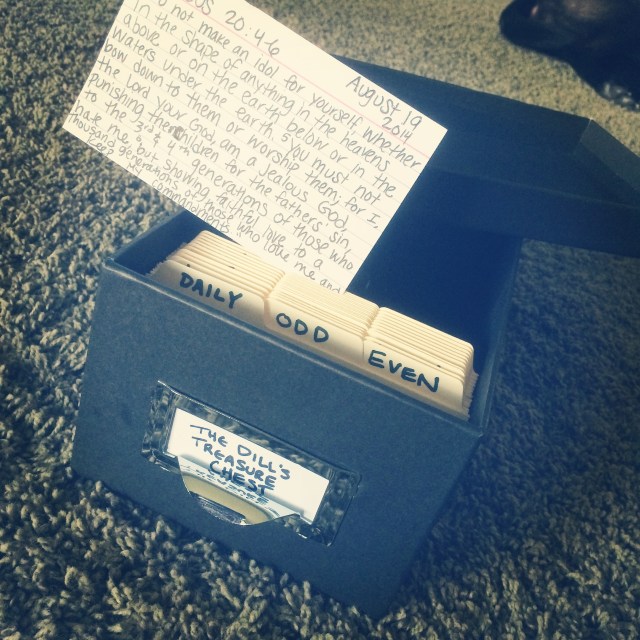 US 20:4-6
August 19
2011
not make an idol for yourself, whether
in the shape of anything in the heavens
above or on the earth below or in the
waters under the earth. You must not
bow down to them or worship them; for I
the Lord your God am a jealous God
punishing the children for the fathers sin
to the 3rd & 4th generations of those who
hate me, but showing faithful love to a
thousand generations of those who love me and
DAILY
ODD
EVEN
THE DILL'S
TREASURE
CHEST